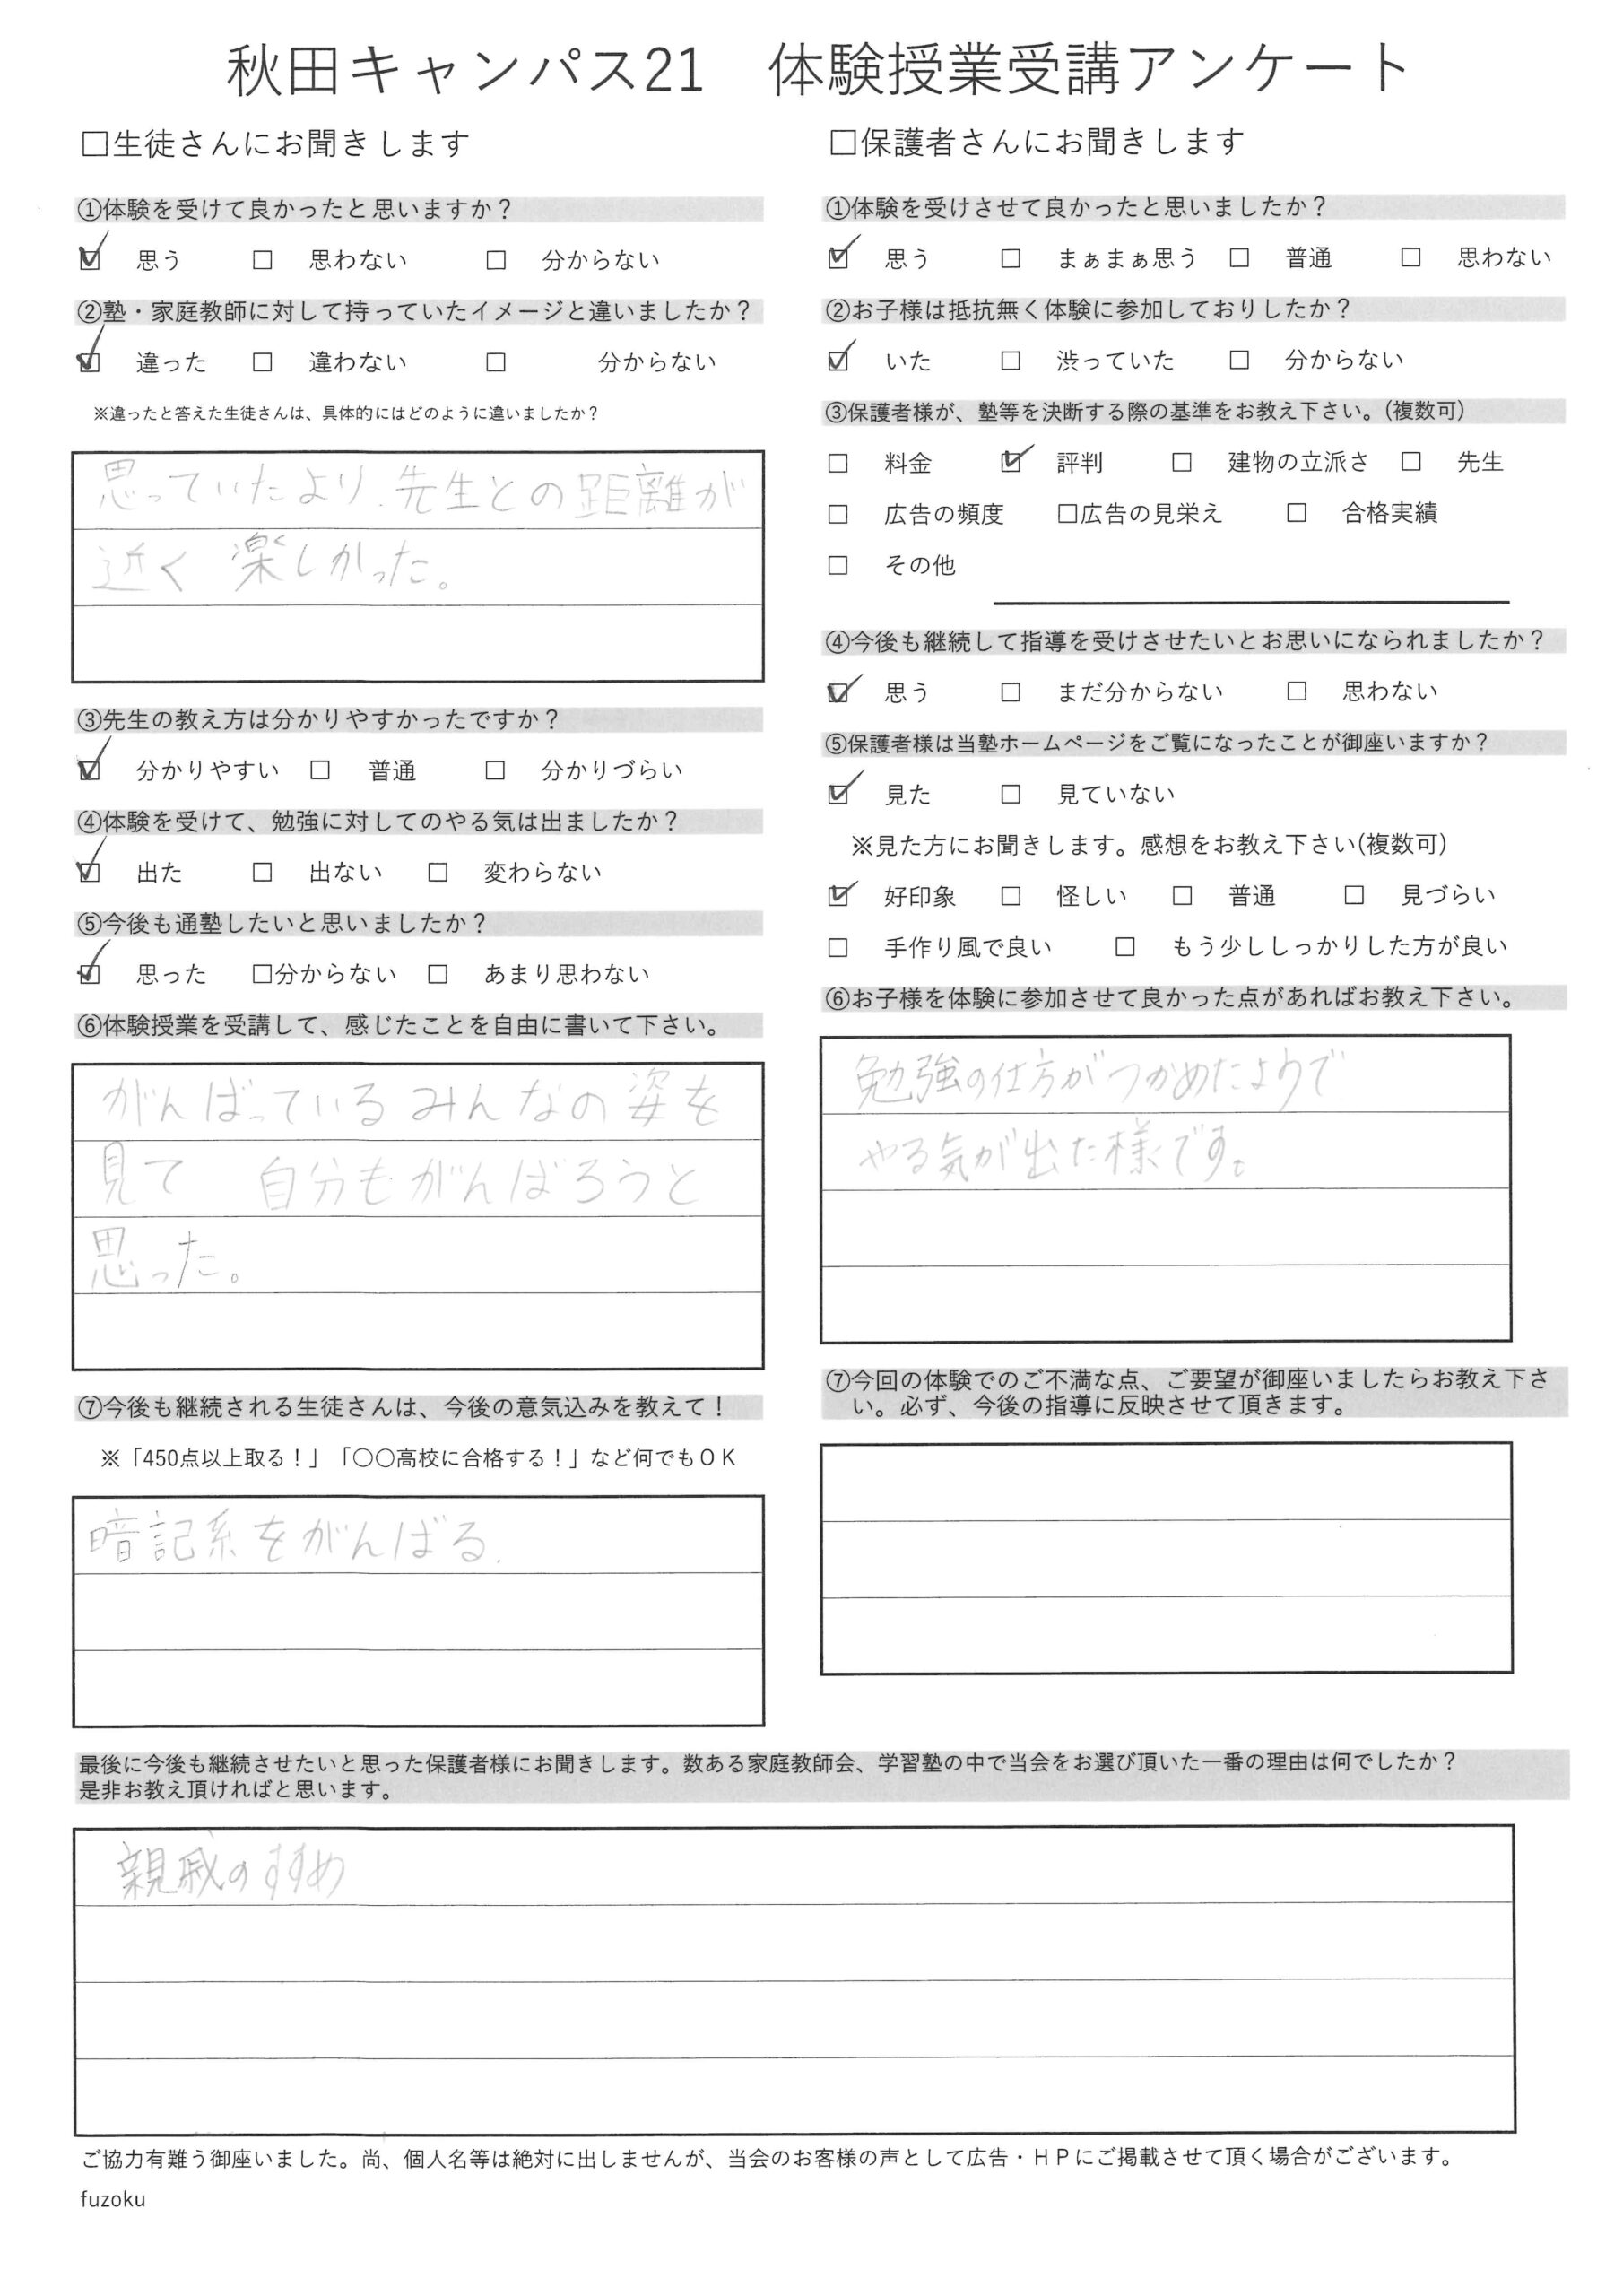 秋田キャンパス21　体験授業受講アンケート
□生徒さんにお聞きします
①体験を受けて良かったと思いますか？
☑ 思う □ 思わない □ 分からない
②塾・家庭教師に対して持っていたイメージと違いましたか？
☑ 違った □ 違わない □ 分からない
※違ったと答えた生徒さんは、具体的にはどのように違いましたか？
思っていたより、先生との距離が
近く 楽しかった。
③先生の教え方は分かりやすかったですか？
☑ 分かりやすい □ 普通 □ 分かりづらい
④体験を受けて、勉強に対してのやる気は出ましたか？
☑ 出た □ 出ない □ 変わらない
⑤今後も通塾したいと思いましたか？
☑ 思った □分からない □ あまり思わない
⑥体験授業を受講して、感じたことを自由に書いて下さい。
がんばっているみんなの姿を
見て 自分もがんばろうと
思った。
⑦今後も継続される生徒さんは、今後の意気込みを教えて！
※「450点以上取る！」「〇〇高校に合格する！」など何でもＯＫ
暗記系をがんばる.
□保護者さんにお聞きします
①体験を受けさせて良かったと思いましたか？
☑ 思う □ まぁまぁ思う □ 普通 □ 思わない
②お子様は抵抗無く体験に参加しておりしたか？
☑ いた □ 渋っていた □ 分からない
③保護者様が、塾等を決断する際の基準をお教え下さい。(複数可)
□ 料金 ☑ 評判 □ 建物の立派さ □ 先生
□ 広告の頻度 □広告の見栄え □ 合格実績
□ その他
④今後も継続して指導を受けさせたいとお思いになられましたか？
☑ 思う □ まだ分からない □ 思わない
⑤保護者様は当塾ホームページをご覧になったことが御座いますか？
☑ 見た □ 見ていない
※見た方にお聞きします。感想をお教え下さい(複数可)
☑ 好印象 □ 怪しい □ 普通 □ 見づらい
□ 手作り風で良い □ もう少ししっかりした方が良い
⑥お子様を体験に参加させて良かった点があればお教え下さい。
勉強の仕方がつかめたようで
やる気が出た様です。
⑦今回の体験でのご不満な点、ご要望が御座いましたらお教え下さ
い。必ず、今後の指導に反映させて頂きます。
最後に今後も継続させたいと思った保護者様にお聞きします。数ある家庭教師会、学習塾の中で当会をお選び頂いた一番の理由は何でしたか？
是非お教え頂ければと思います。
親戚のすすめ
ご協力有難う御座いました。尚、個人名等は絶対に出しませんが、当会のお客様の声として広告・ＨＰにご掲載させて頂く場合がございます。
fuzoku